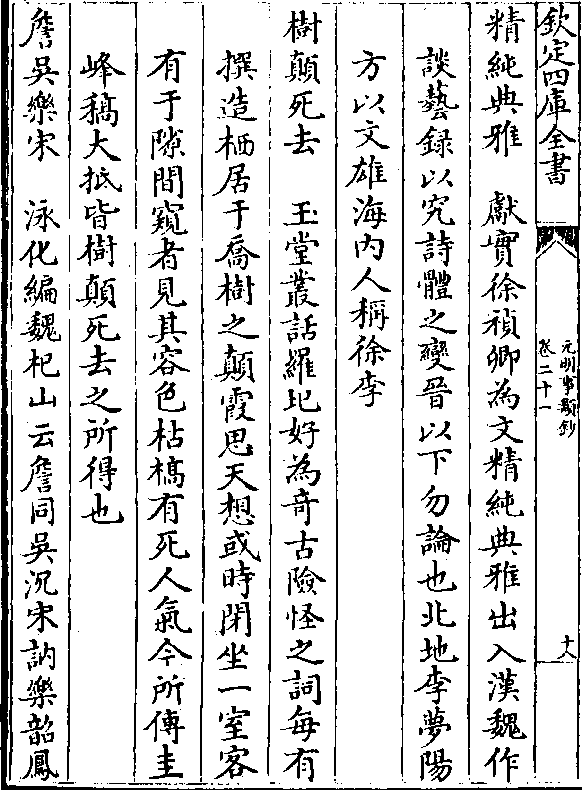 欽定四庫全書
元明事類鈔
卷二十一
十八
精純典雅　獻實徐禎卿為文精純典雅出入漢魏作
談藝録以究詩體之變晉以下勿論也北地李夢陽
方以文雄海内人稱徐李
樹顛死去　玉堂叢話羅玘好為竒古險怪之詞每有
撰造栖居于喬樹之顛霞思天想或時閉坐一室客
有于隙間窺者見其容色枯槁有死人氣今所傳圭
峰稿大抵皆樹顛死去之所得也
詹吳樂宋　泳化編魏杞山云詹同吳沉宋訥樂韶鳳